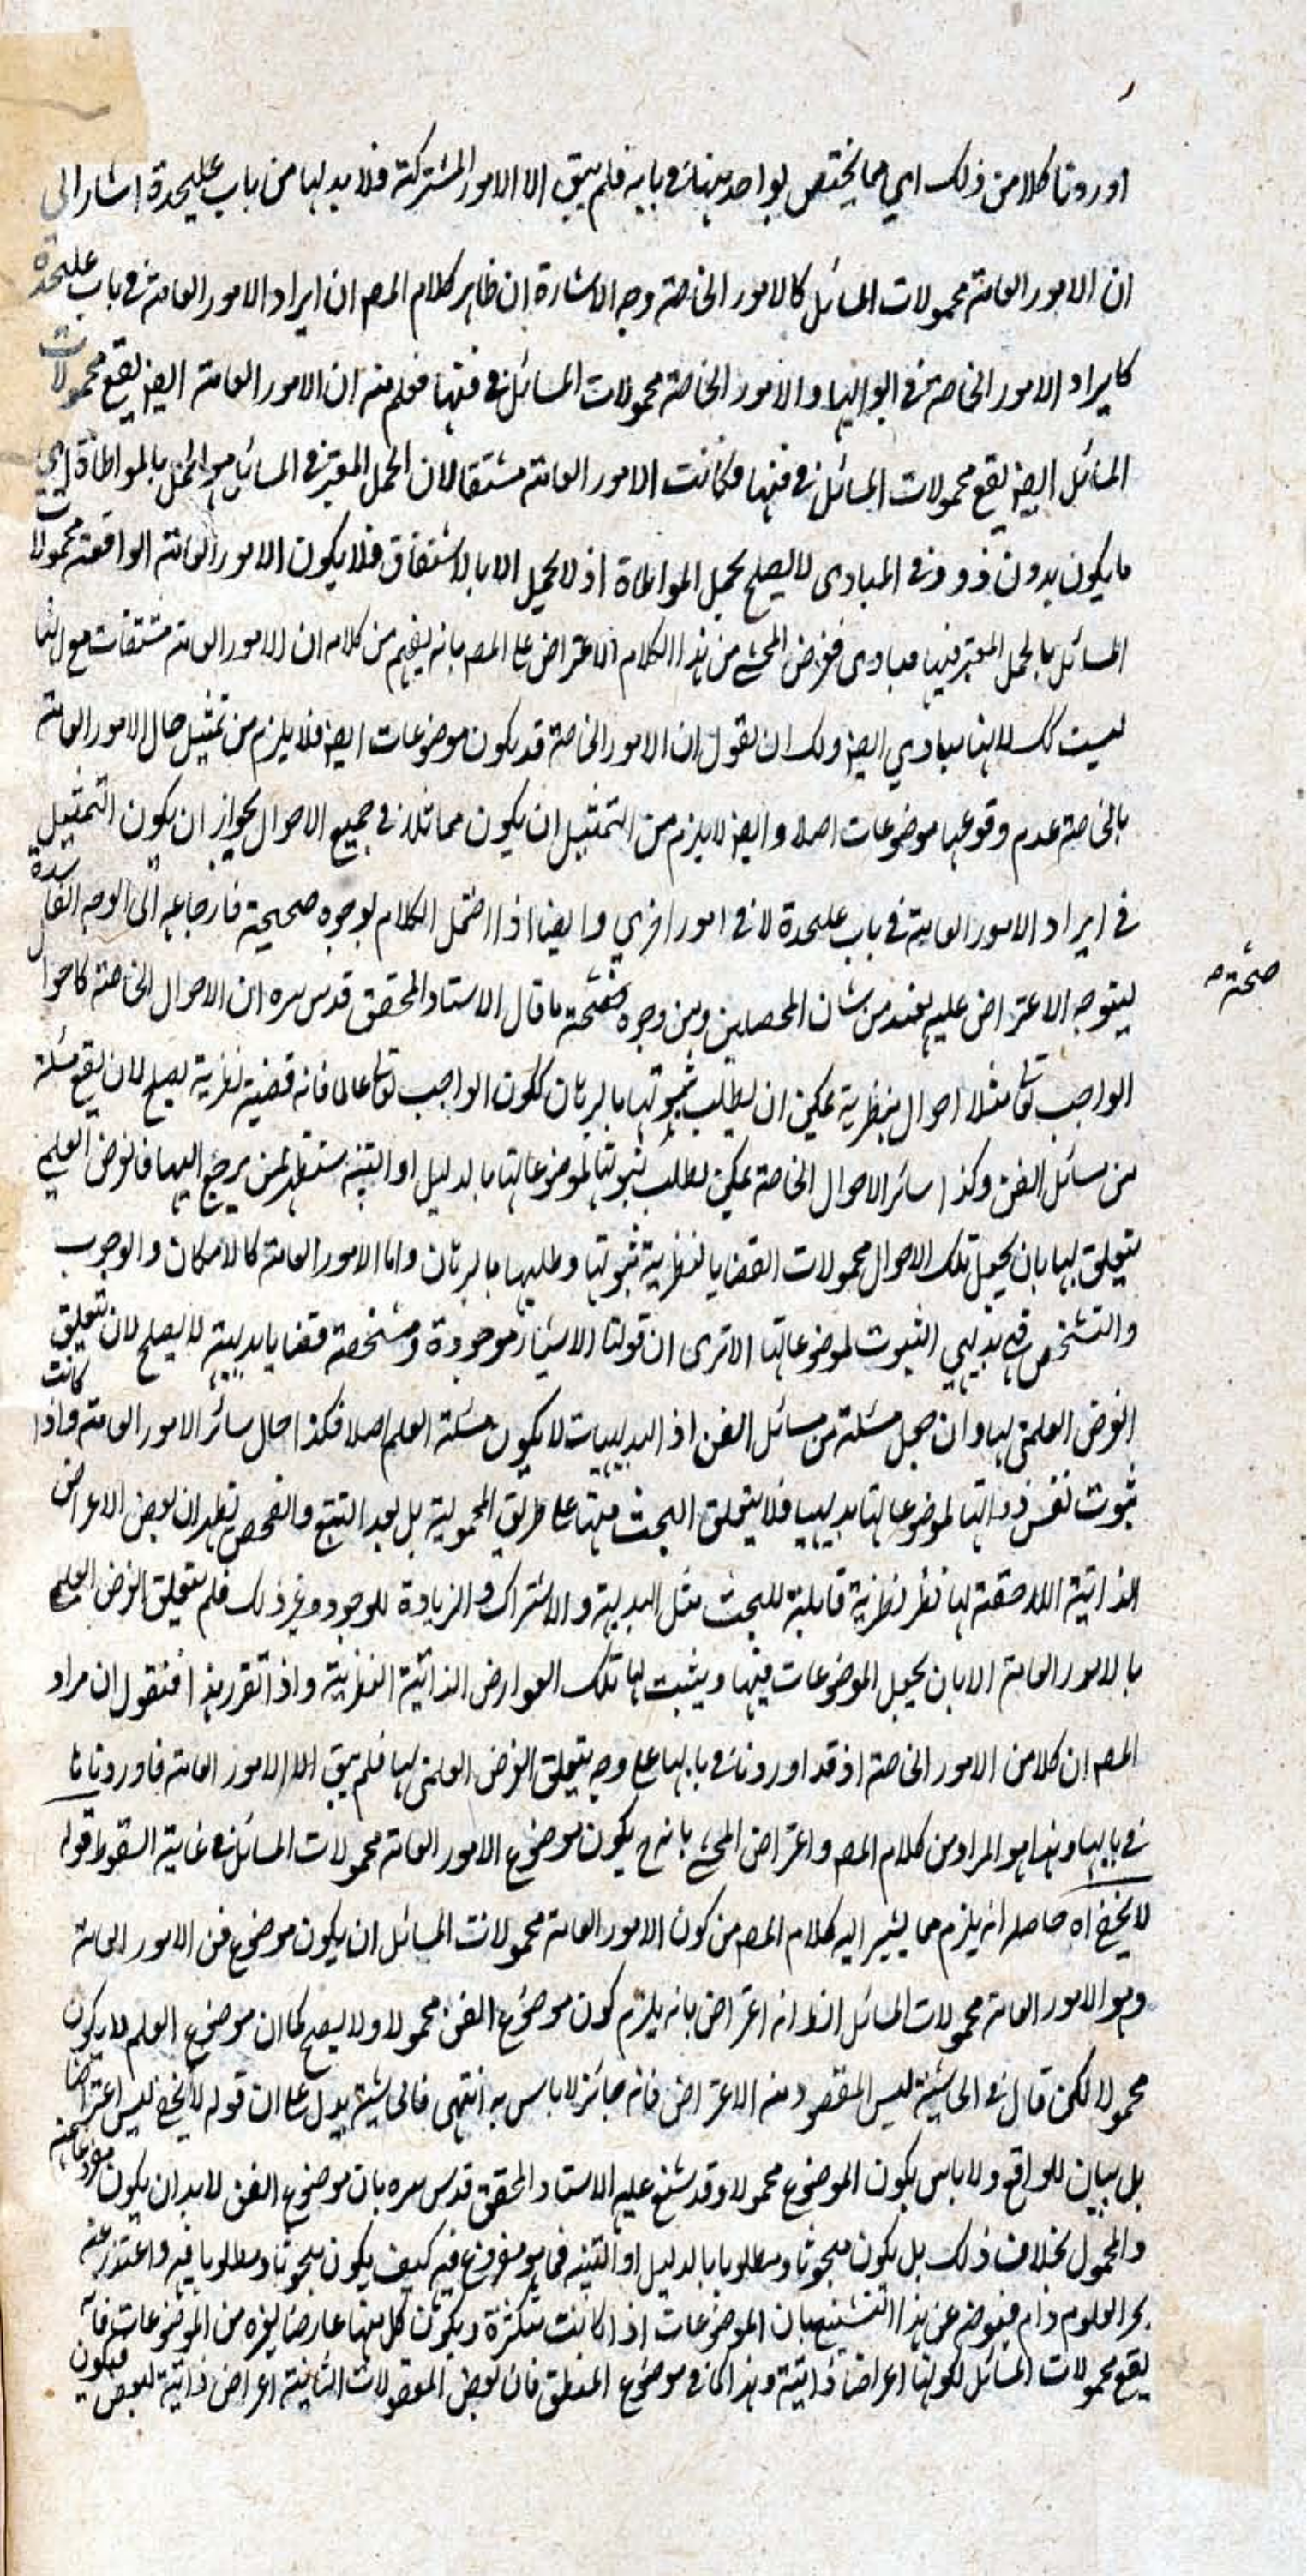 اوردنا كلا من ذلك اي مما يختص بواحد منها في بابه فلم يبق الا الامور المشتركة فلا بد لها من باب عليحدة اشار الى
ان الامور العامة محمولات المسائل كالامور الخاصة وجه الاشارة ان ظاهر كلام المصـ ان ايراد الامور العامة في باب عليحدة
كايراد الامور الخاصة في ابوابها والامور الخاصة محمولات المسائل في فنها فعلم منه ان الامور العامة ايضـ يقع محمولات
المسائل ايضـ يقع محمولات المسائل في فنها فكانت الامور العامة مشتقا لان الحمل المعتبر في المسائل هو الحمل بالمواطاة اي
ما يكون بدون ذو و في المبادى لا يصلح لحمل المواطاة اذ لا يحمل الا بالاشتقاق فلا يكون الامور العامة الواقعة محمولات
المسائل بالحمل المعتبر فيها مبادى فغرض المحشے من هذا الكلام الاعتراض على المصـ بانه يفهم من كلامه ان الامور العامة مشتقات مع انها
ليست كك لانها مبادي ايضـ ولك ان تقول ان الامور الخاصة قد يكون موضوعات ايضـ فلا يلزم من تمثيل حال الامور العامة
بالخاصة عدم وقوعها موضوعات اصلا وايضـ لا يلزم من التمثيل ان يكون مماثلا في جميع الاحوال لجواز ان يكون التمثيل
في ايراد الامور العامة في باب عليحدة لا في امور اخري وايضا اذا احتمل الكلام لوجوه صحيحة فارجاعه الى الوجه الفاسدة
ليتوجه الاعتراض عليه ليس من شان المحصلين ومن وجوه صحته ما قال الاستاد المحقق قدس سره ان الاحوال الخاصة كاحوال
صحتهـ
الواجب تعـ مثلا احوال نظرية يمكن ان يطلب ثبوتها بالبرهان ككون الواجب تعـ عالما فانه قضية نظرية يصلح لان يقع مسئلة
من مسائل الفن وكذا سائر الاحوال الخاصة يمكن يطلب ثبوتها لموضوعاتها بالدليل او التنبيه ستظهر لمن يرجع اليها فالغرض العلمي
يتعلق بها بان يجعل تلك الاحوال محمولات القضايا لنظرية ثبوتها وطلبها بالبرهان واما الامور العامة كالامكان والوجوب
والتشخص فهي بديهي الثبوت لموضوعاتها الا ترى ان قولنا الاشياء موجودة ومشخصة قضايا بديهية لا يصلح لان تتعلق
الغرض العلمي بها وان جعل مسئلة من مسائل الفن اذ البديهيات لا يكون مسئلة العلم اصلا فكذا حال سائر الامور العامة واذا كانت
ثبوت نفس ذواتها لموضوعاتها بديهيا فلا يتعلق البحث منها على طريق المحمولية بل بعد التتبع والفحص تظهر ان بعض الاعراض
الذاتية اللاحقة لها نظر نظرية قابلة للبحث مثل البديهية والاشتراك والزيادة للوجود وغير ذلك فلم يتعلق الغرض العلمي
بالامور العامة الا بان يجعل الموضوعات فيها ويثبت لها تلك العوارض الذاتية النظرية واذا تقرر هذا فنقول ان مراد
المصـ ان كلا من الامور الخاصة اذ قد اوردنا في بابها على وجه يتعلق الغرض العلمي بها فلم يبق الا الامور العامة فاوردناها
في بابها وهذا هو المراد من كلام المصـ واعتراض المحشے بانه ح يكون موضوع الامور العامة محمولات المسائل في غاية السقوط قوله
لا يخفى اه حاصله انه يلزم مما يشير اليه كلام المصـ من كون الامور العامة محمولات المسائل ان يكون موضوع فن الامور العامة
وهو الامور العامة محمولات المسائل الظـ انه اعتراض بانه يلزم كون موضوع الفن محمولا ولا يصح كما ان موضوع العلم لا يكون
محمولا لكن قال في الحاشية ليس المقصود منه الاعتراض فانه جائز لا باس به انتهى فالحاشية يدل على ان قوله لا يخفى ليس اعتراضا
بل بيان للواقع ولا باس بكون الموضوع محمولا وقد شنع عليه الاستاد المحقق قدس سره بان موضوع الفن لابد ان يكون مفروغا عنه
والمحمول بخلاف ذلك بل يكون مبحوثا ومطلوبا بالدليل او التنبيه فما هو مفروغ فيه كيف يكون مبحوثا ومطلوبا فيه واعتذر عنه
بحر العلوم دام فيوضه عن هذا التشنيع بان الموضوعات اذا كانت متكثرة ويكون كل منها عارضا لغيره من الموضوعات
يقع محمولات المسائل لكونها اعراضا ذاتية وهذا كما في موضوع المنطق فان بعض المعقولات الثانية اعراض ذاتية لبعض فيكون